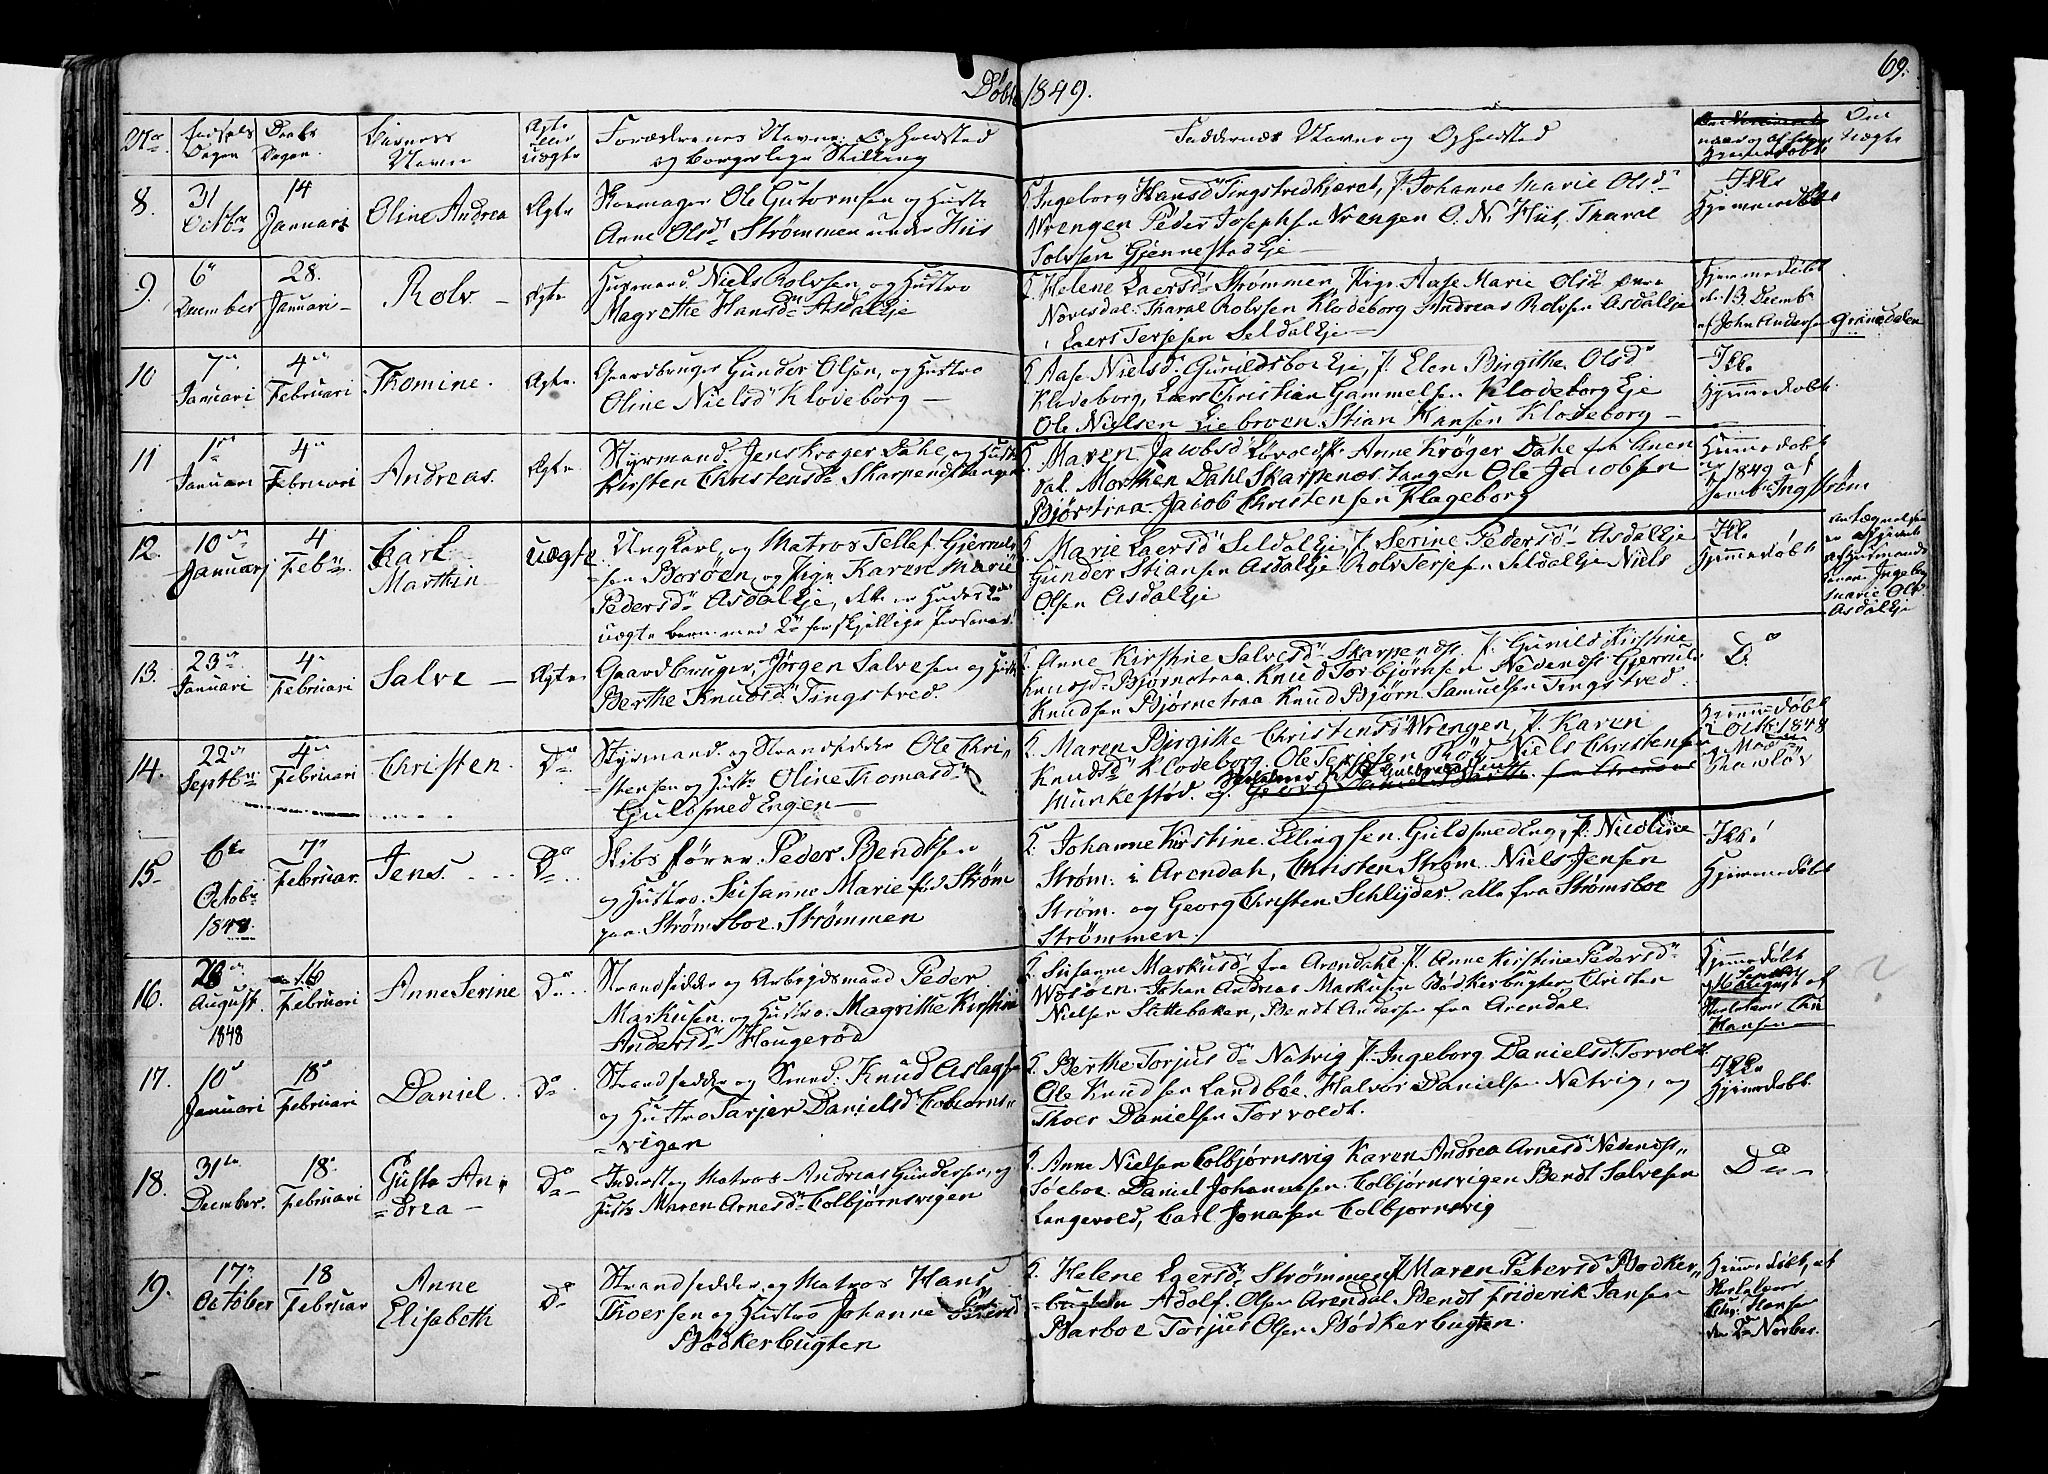 Døbte 1849.
69.
No
Fødsels Dagen
Daabs Dagen.
Barnets Navn
Ægte eller uægte
Forældrenes Navne, Opholdsted
og borgerlige Stilling
Faddernes Navne og Opholdsted
Hjemmedøbte
Om uægte
8.
31 Octbr
14 Januari
Oline Andrea
Ægte
Skomager Ole Gutormsen og Hustr
Anne Olsd Strømmen under Hiis
Ingeborg Hansd Tingstvedkjæret, P. Johanne Marie Olsd
Vrengen Peder Josephsen Vrengen O. N. Hiis, Tharal
Tolvsen Gjennestad Eje
Ikke Hjemmedøbt
9.
6 December
28. Januari
Rolv
Ægte
Huusmand Niels Rolvsen og Hustro
Magrethe Hansd Asdal Eje
Helene Laersd Strømmen, Pige Aase Marie Olsd
Novesdal. Tharal Rolvsen Klodeborg Andreas Rolvsen Asdal Eje
Laers Terjesen Seldal Eje
Hjemmedøbt
d. 13 Decemb
af John Andersen Grønedalen
10
7 Januari
4 Februari
Thomine.
Ægte.
Gaardbruger Gunder Olsen, og Hustro
Oline Nielsd Klodeborg
Aase Nielsd Gunildsboe Eje, P. Elen Birgithe Olsd
Klodeborg, Laers Christian Gammelsen Klodeborg Eje
Ole Nielsen Liebroen Stian Hansen Klodeborg
Ikke Hjemmedøbt.
11
1 Januari
4 Februari
Andreas.
Ægte.
Styrmand. Jens Krøger Dahl, og Hustr
Kirsten Christensd Skarpenæs Tangen
Maren Jacobsd Løvold, P. Anne Krøger Dahl fra Grnen
dal. Morthen Dahl Skarpenos Tangen Ole Jacobsen
Bjørstraa. Jacob Christensen Klageborg
Hjemmedøbt
1849 af
Jomfru Ingstrøm
12.
10 Januarj
4 Feb
Carl Marthin
uægte
Ungkarl og Matros Tellef Gjeruls
sen Borøen, og Pige Karen Marie
Pedersd Asdal Eje, dette er Hendes 2det
uægte barn med 2de forskjellige Personer.
Marie Laersd Seldal Eje P. Serine Pedersd Asdal Eje
Gunder Stiansen Asdal Eje Rolv Terjesen Seldal Eje Niels
Olsen Asdal Eje
Ikke Hjemmedøbt
Antegnelsen er afgivet af Huusmands kone Ingeborg Marie Olsd Asdal Eje
13.
23 Januari
4 Februari
Salve
Ægte
Gaardbruger, Jørgen Salvesen og Hustr
Berthe Knudsd Tingstved.
Anne Kirstine Salvesd Skarpends P. Gunild Kirstine
Knudsd Bjørnetraa. Knud Torbjørnsen Nedends Gjerrul
Knudsen Bjørnetraa Knud Bjørn Samuelsen Tingstved.
Do
14.
22 Septbr
4 Februari
Christen.
Do
Styrmand og Strandsidder Ole Chri
stensen og Hustr Oline Thomasd
Guldsmed Engen
Maren Birgitte Christensd Vrengen, P. Karen
Knudsd Klodeborg. Ole Terjesen Rød Niels Christensen
Munkestød.
Hjemmedøbt
2 Octb. 1848
15
6te October 1848.
7 Februar.
Jens.
Do
Skibsfører Peder Bendtsen
og Hustro. Susanne Marie fød Strøm
paa Strømsboe. Strømmen
Johanne Kirstine Ellingsen Guldsmed Eng, P. Nicoline
Strøm i Arendahl, Christen Strøm. Niels Jensen
Strøm. og Georg Christen Schlyder alle fra Strømsboe
Strømmen.
Ikke Hjemmedøbt
16.
20 August. 1848
16 Februari
Anne Serine
Do
Strandsidder og Arbejdsmand Peder
Markusen. og Hustro. Magrithe Kirstine
Andersd Haugerød
Susanne Markusd fra Arendahl P. Anne Kirstine Pedersd
Woxøen. Johan Andreas Markusen Bødkerbugten Christen
Nielsen Slittebaken, Bendt Andersen fra Arendal.
Hjemmedøbt
Hansen
17.
10 Januari
18 Februari
Daniel.
Do
Strandsidder og Smed. Knud Aslags
og Hustro Tarjer Danielsd Colbiørns
vigen
Berthe Torjus d Natvig P. Ingeborg Danielsd Torvold
Ole Knudsen Landbøe. Halvor Danielsen Natvig, og
Thoer Danielsen Torvoldt.
Ikke Hjemmedøbt.
18.
31te December.
18 Februari
Gusta Andrea
Do
Inderst og Matros Andreas Gundersen, og
Hustr Maren Arnesd Colbjørnsvigen
Anne Nielsen Colbjørnsvig Karen Andrea Arnesd Nedends
Søeboe. Daniel Johannesen Colbjørnsvigen Bendt Salvesen
Langevold, Carl Jonasen Colbjørnsvig
Do
19.
17 October
18 Februar
Anne Elisabeth
Do
Strandsidder og Matros Hans
Thoersen og Hustro Johanne
Bødkerbugten
Helene Laersd Strømmen P. Maren Petersd Bødker
bugten Adolf Olsen Arendal Bendt Friderik Jansen
Barboe Torjus Olsen Bødkerbugten.
Hjemmedøbt, af
Skolelærer
Chr: Hansen
den 2 Novbr.